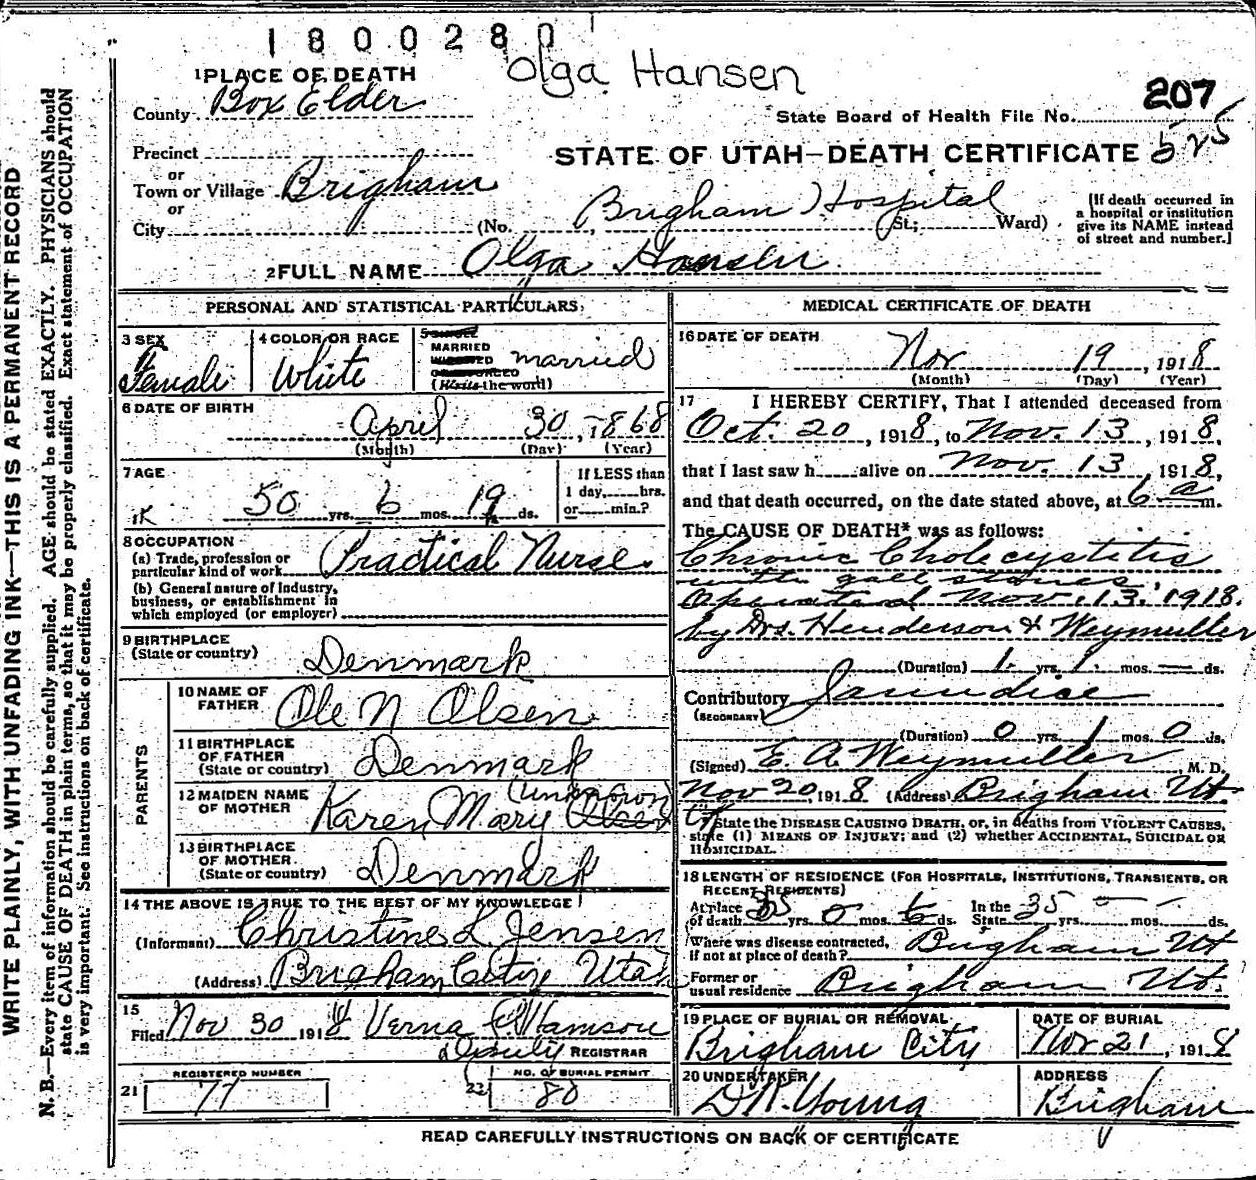 1800280
Olga Hansen
1 PLACE OF DEATH
County Box Elder
207
State Board of Health File No.
Precinct
STATE OF UTAH—DEATH CERTIFICATE 525
or
Town or Village Brigham
or
City (No. Brigham Hospital St; Ward)
[If death occurred in
a hospital or institution
give its NAME instead
of street and number.]
2 FULL NAME Olga Hansen
PERSONAL AND STATISTICAL PARTICULARS
3 SEX
Female
4 COLOR OR RACE
White
5 SINGLE
MARRIED
WIDOWED
OR DIVORCED
(Write the word)
married
6 DATE OF BIRTH
April 30, 1868
(Month) (Day) (Year)
7 AGE
50 yrs. 6 mos. 19 ds.
If LESS than
1 day, hrs.
or min.?
8 OCCUPATION
(a) Trade, profession or
particular kind of work Practical Nurse.
(b) General nature of Industry,
business, or establishment in
which employed (or employer)
9 BIRTHPLACE
(State or country) Denmark
PARENTS
10 NAME OF
FATHER Ole N Olsen
11 BIRTHPLACE
OF FATHER
(State or country) Denmark
12 MAIDEN NAME
OF MOTHER Karen Mary Olsen (unknown)
13 BIRTHPLACE
OF MOTHER
(State or country) Denmark
14 THE ABOVE IS TRUE TO THE BEST OF MY KNOWLEDGE
(Informant) Christine L Jensen
(Address) Brigham City Utah
15
Filed Nov 30 1918 Verna
Deputy REGISTRAR
REGISTERED NUMBER
21 77
NO. OF BURIAL PERMIT
22 80
MEDICAL CERTIFICATE OF DEATH
16 DATE OF DEATH
Nov 19, 1918
(Month) (Day) (Year)
17 I HEREBY CERTIFY, That I attended deceased from
Oct. 20, 1918, to Nov. 13, 1918,
that I last saw h alive on Nov. 13 1918,
and that death occurred, on the date stated above, at 6 a m.
The CAUSE OF DEATH* was as follows:
Chronic Cholecystitis
with gall stones,
Operated Nov. 13. 1918.
by Drs. Henderson & Weymuller
(Duration) 1 yrs. 1 mos. — ds.
Contributory Jaundice
(SECONDARY)
(Duration) 0 yrs. 1 mos. 0 ds.
(Signed) E. A. Weymuller M. D.
Nov 20, 1918 (Address) Brigham Ut.
State the DISEASE CAUSING DEATH, or, in deaths from VIOLENT CAUSES,
state (1) MEANS OF INJURY; and (2) whether ACCIDENTAL, SUICIDAL OR
HOMICIDAL.
18 LENGTH OF RESIDENCE (FOR HOSPITALS, INSTITUTIONS, TRANSIENTS, OR
RECENT RESIDENTS)
At place
of death 35 yrs. 0 mos. 6 ds. In the
State 35 yrs. — mos. — ds.
Where was disease contracted,
if not at place of death? Brigham Ut
Former or
usual residence Brigham Ut.
19 PLACE OF BURIAL OR REMOVAL
Brigham City
DATE OF BURIAL
Nov 21, 1918
20 UNDERTAKER
Young
ADDRESS
Brigham
READ CAREFULLY INSTRUCTIONS ON BACK OF CERTIFICATE
WRITE PLAINLY, WITH UNFADING INK—THIS IS A PERMANENT RECORD
N. B.—Every item of information should be carefully supplied. AGE should be stated EXACTLY. PHYSICIANS should
state CAUSE OF DEATH in plain terms, so that it may be properly classified. Exact statement of OCCUPATION
is very important. See instructions on back of certificate.